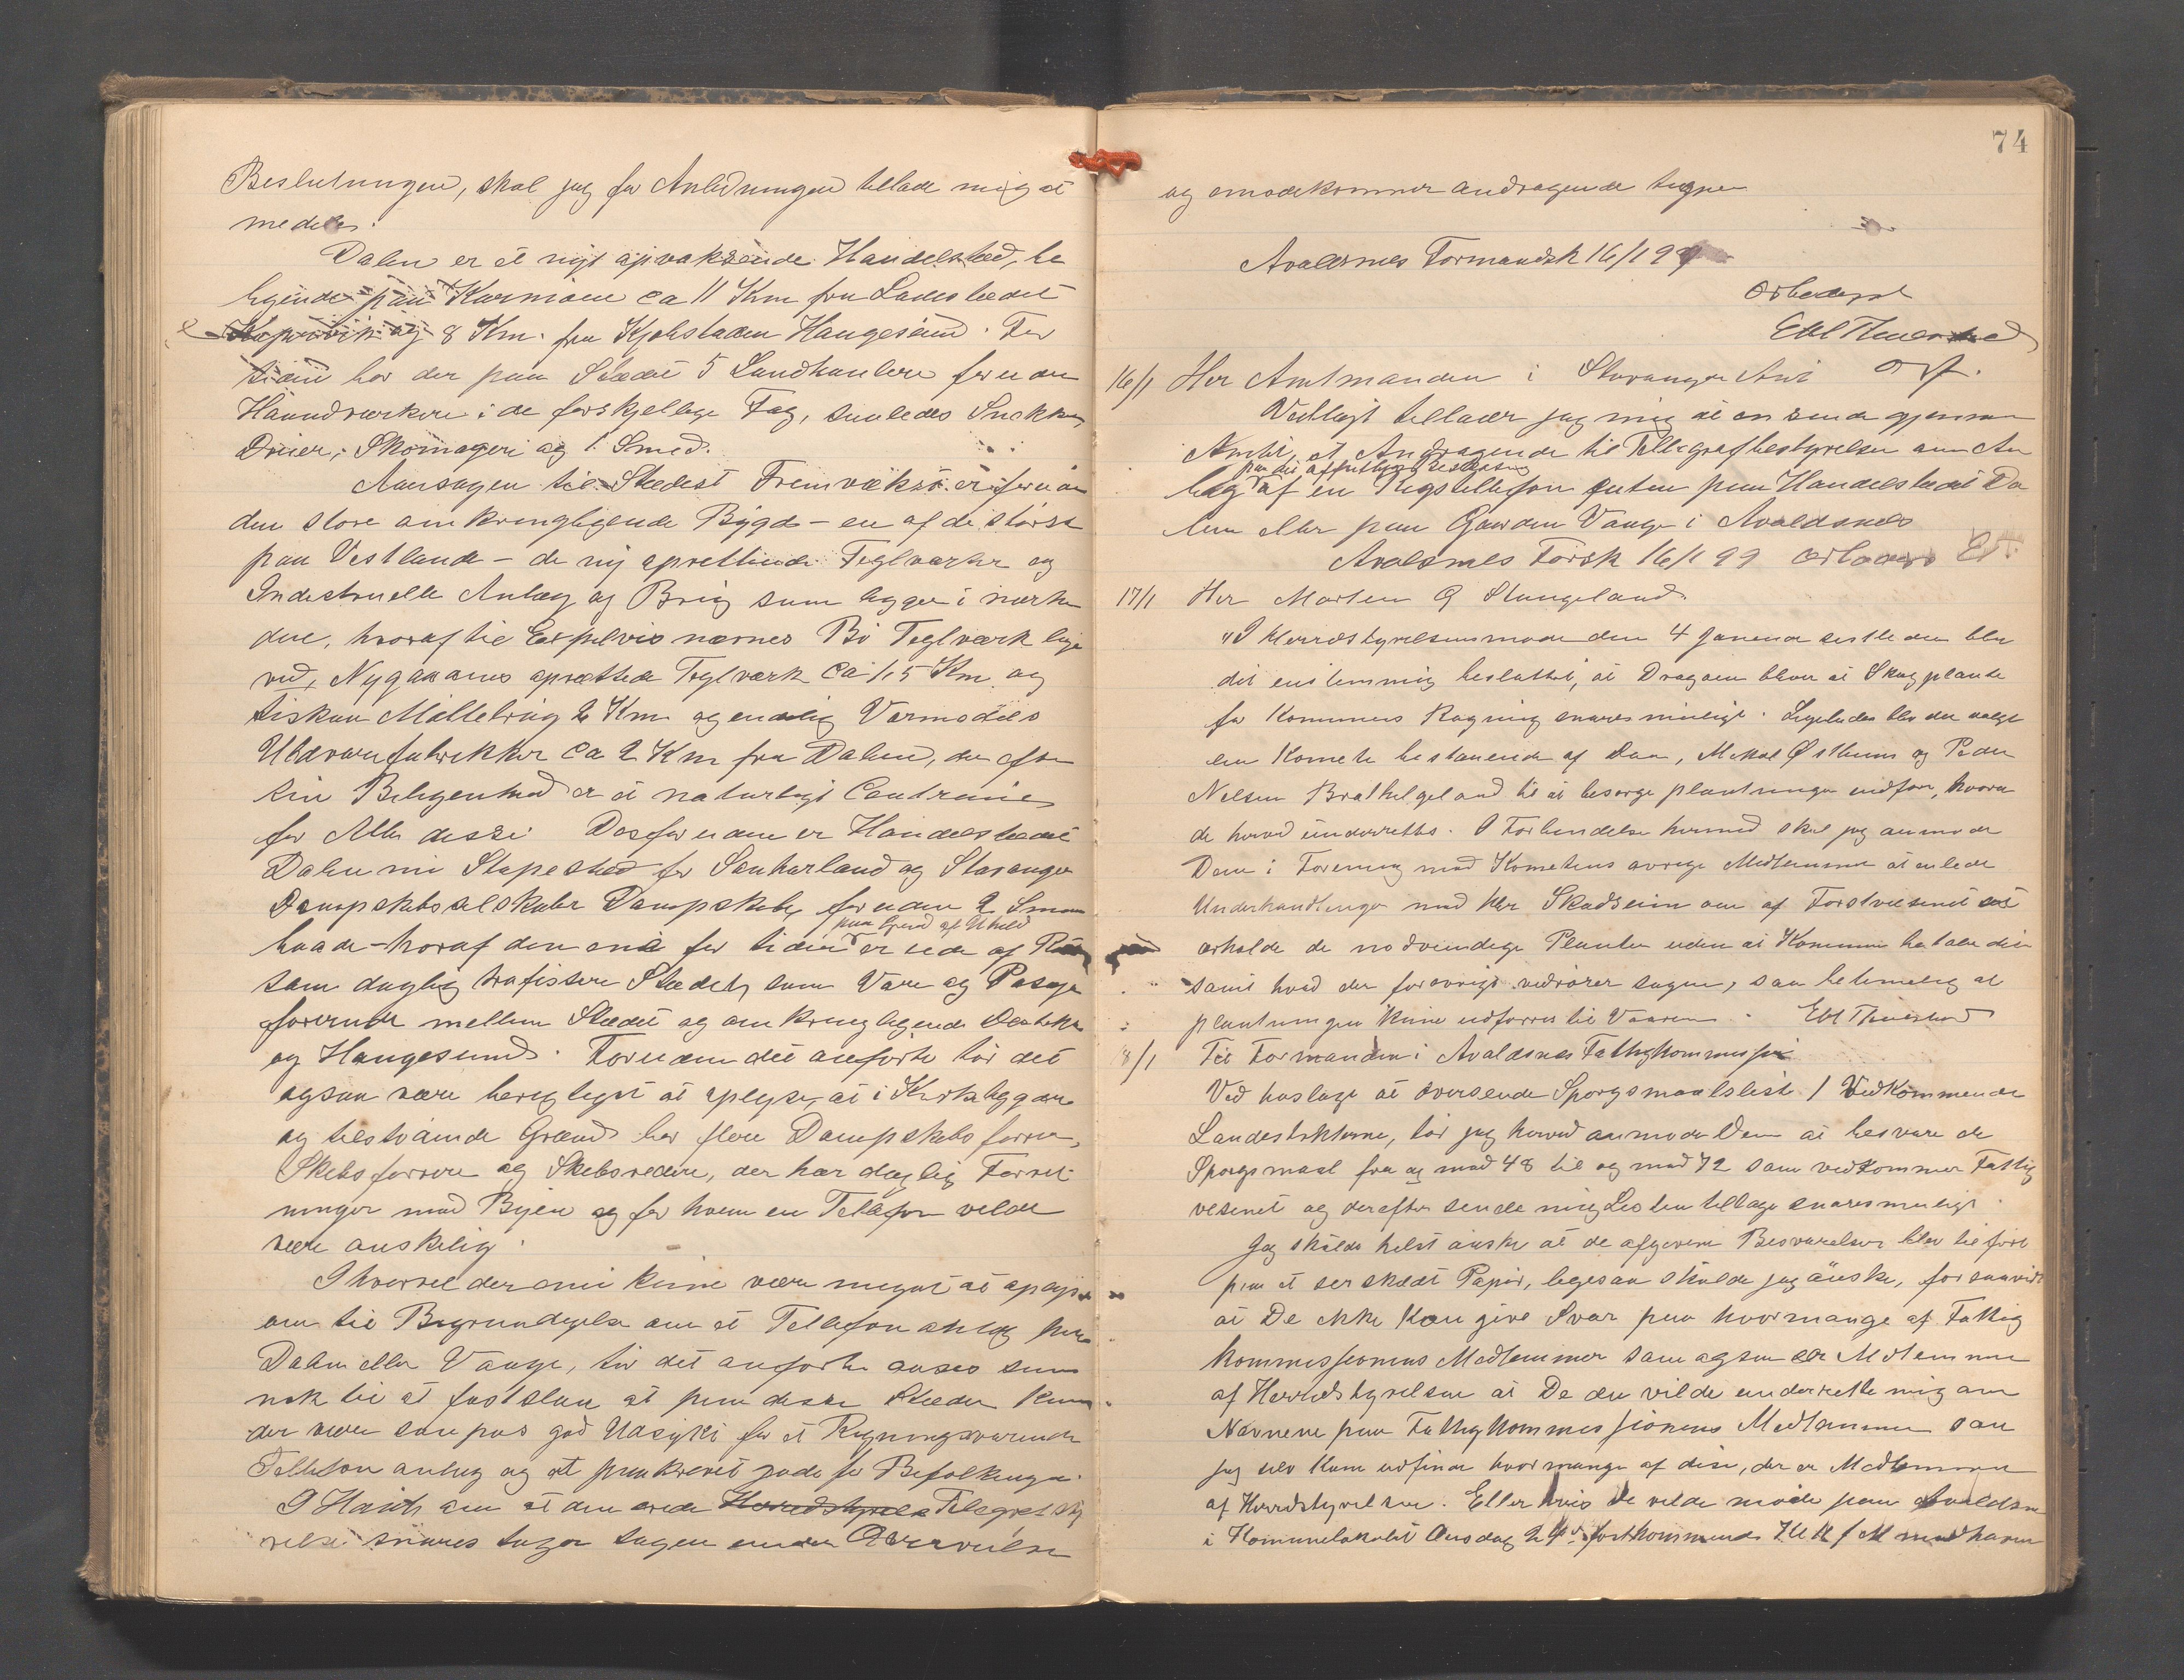 Beslutningen, skal jeg for Anledningen tellade mig at
meddele:
Dalen er et nyt opvaksende Handelsted, be
ligende paa Karmøen ca 11 Km fra Ladestedet
Kopervik og 8 Km. fra Kjøbstaden Haugesund. For
tiden bor der paa Stedet 5 Landhanlere foruden
Haandværkere i de forskjellige Fag, saaledes Snekker,
Dreier, Skomageri og 1 Smed.
Aarsagen til Stedest Fremvækst er foruden
den store omkringligende Bygd - en af de størst
paa Vestlande - de ny oprettende Teglværker og
Industruelle Anlæg og Brug som ligger i nærhe
den, hvoraf til Expelvis nævnes Bø Teglværk lige
ved, Nygaaranes oprettede Teglværk ca 1,5 Km og
Møllebrug 2 Km og endelig Vormedals
Uldvarefabrikker ca 2 Km fra Dalen, der efter
sin Beligenhed er et naturligt Centrum
for Alle disse. Desforuden er Handelstedet
Dalen nu Stopested for Sønhorland og Stavanger
Dampskibsselskabs Dampskibe, foruden 2 Smaa
paa Grund af Uheld
baade - hvoraf den ene for tiden er ude af
som daglig trafistere Stedet, som Vare og Passager
førende mellem Stedet og omkringligende Destrikter
og Haugesund. Foruden det anførte tør det
ogsaa være berigtiget at oplyse, at i Kirkebygden
og tilstødende Grænd bor flere Dampskibsførere,
Skibsførrere og Skibsredere, der har daglig Forret
ninger med Byen og for hvem en Telefon vilde
være ønskelig.
Ihvorvel der enu kune være meget at opregne
om til Begrundelse om et Tellefon anlæg paa
Dalen eller Vaage, tør det anførte anses som
nok til at fastslaa at paa disse Steder kun
der være saapas god Udsigt for et Regningsvarende
Tellefon anlæg og et paakrevet gode for Befolkingen.
I Haab om at den ærede Heredstyrels Telegrafsty
relse snares tager sagen under Overveielse
74
og imødekommer andragende tegner
Avaldsnes Formandsk 16/1 99
Ærbødigst
16/1 Her Amtmanden i Stavanger Amt
Vedlagt tellader jeg mig at oversende gjennem
Amtet, et Andragende til Tellegrafbestyrelsen om An
paa det offentliges Bekostning
læg af en Rigstellefon enten paa Handelstedet Da
len eller paa Gaarden Vaage i Avaldsnes
Avalsnes Forsk 16/1 99 ærbødigst ET.
17/1 Her Morten G Stangeland
"I Herredstyrelsesmøde den 4 Januar sistleden blev
det enstemmig besluttet, at Dragøen bliver at Skogplante
for Kommunens Regning snares muligt. Ligeledes blev der valgt
en Komete bestaaende af Dem, Mikal Østhuus og Peder
Nelsen Brathelgeland til at besørge plantningen udført, hvorom
de herved underrettes. I Forbindelse hermed skal jeg anmode
Dem i Forening med Kometens øvrige Medlemmer at inlede
Underhandlinger med Her Skadsem om af Forstvæsenet at
erholde de nødvendige Planter uden at Kommunen betaler dem
samt hvad der forøvrigt vedrører sagen, saa betimelig at
plantningen kune udføres til Vaaren.
18/1 Til Formanden i Avaldsnes Fattigkommission
Ved hoslagt at oversende Spørgsmaalsliste 1 Vedkommende
Landestrikterne, tør jeg herved anmode Dem at besvare de
Spørgsmaal fra og med 48 til og med 72 som vedkommer Fattig
vesenet og derefter sende mig Listen tellbage snaresmuligt.
Jeg skulde helst ønske at de afgivne Besvarelser blev tilført
paa et særskildt Papir, ligesaa skulde jeg ønske, forsaavidt
at De ikke kan give Svar paa hvormange af Fattig
kommissionens Medlemmer som ogsaa er Medlemmer
af Herredstyrelsen at De da vilde underrette mig om
Navnene paa Fattigkommissionens Medlemmer saa
jeg selv kan udfinde hvor mange af disse, der er Medlemmer
af Herredstyrelsen. Eller hvis De vilde møde paa Avaldsn
i Kommunelokalet Onsdag førstkommende Kl f M medhavende